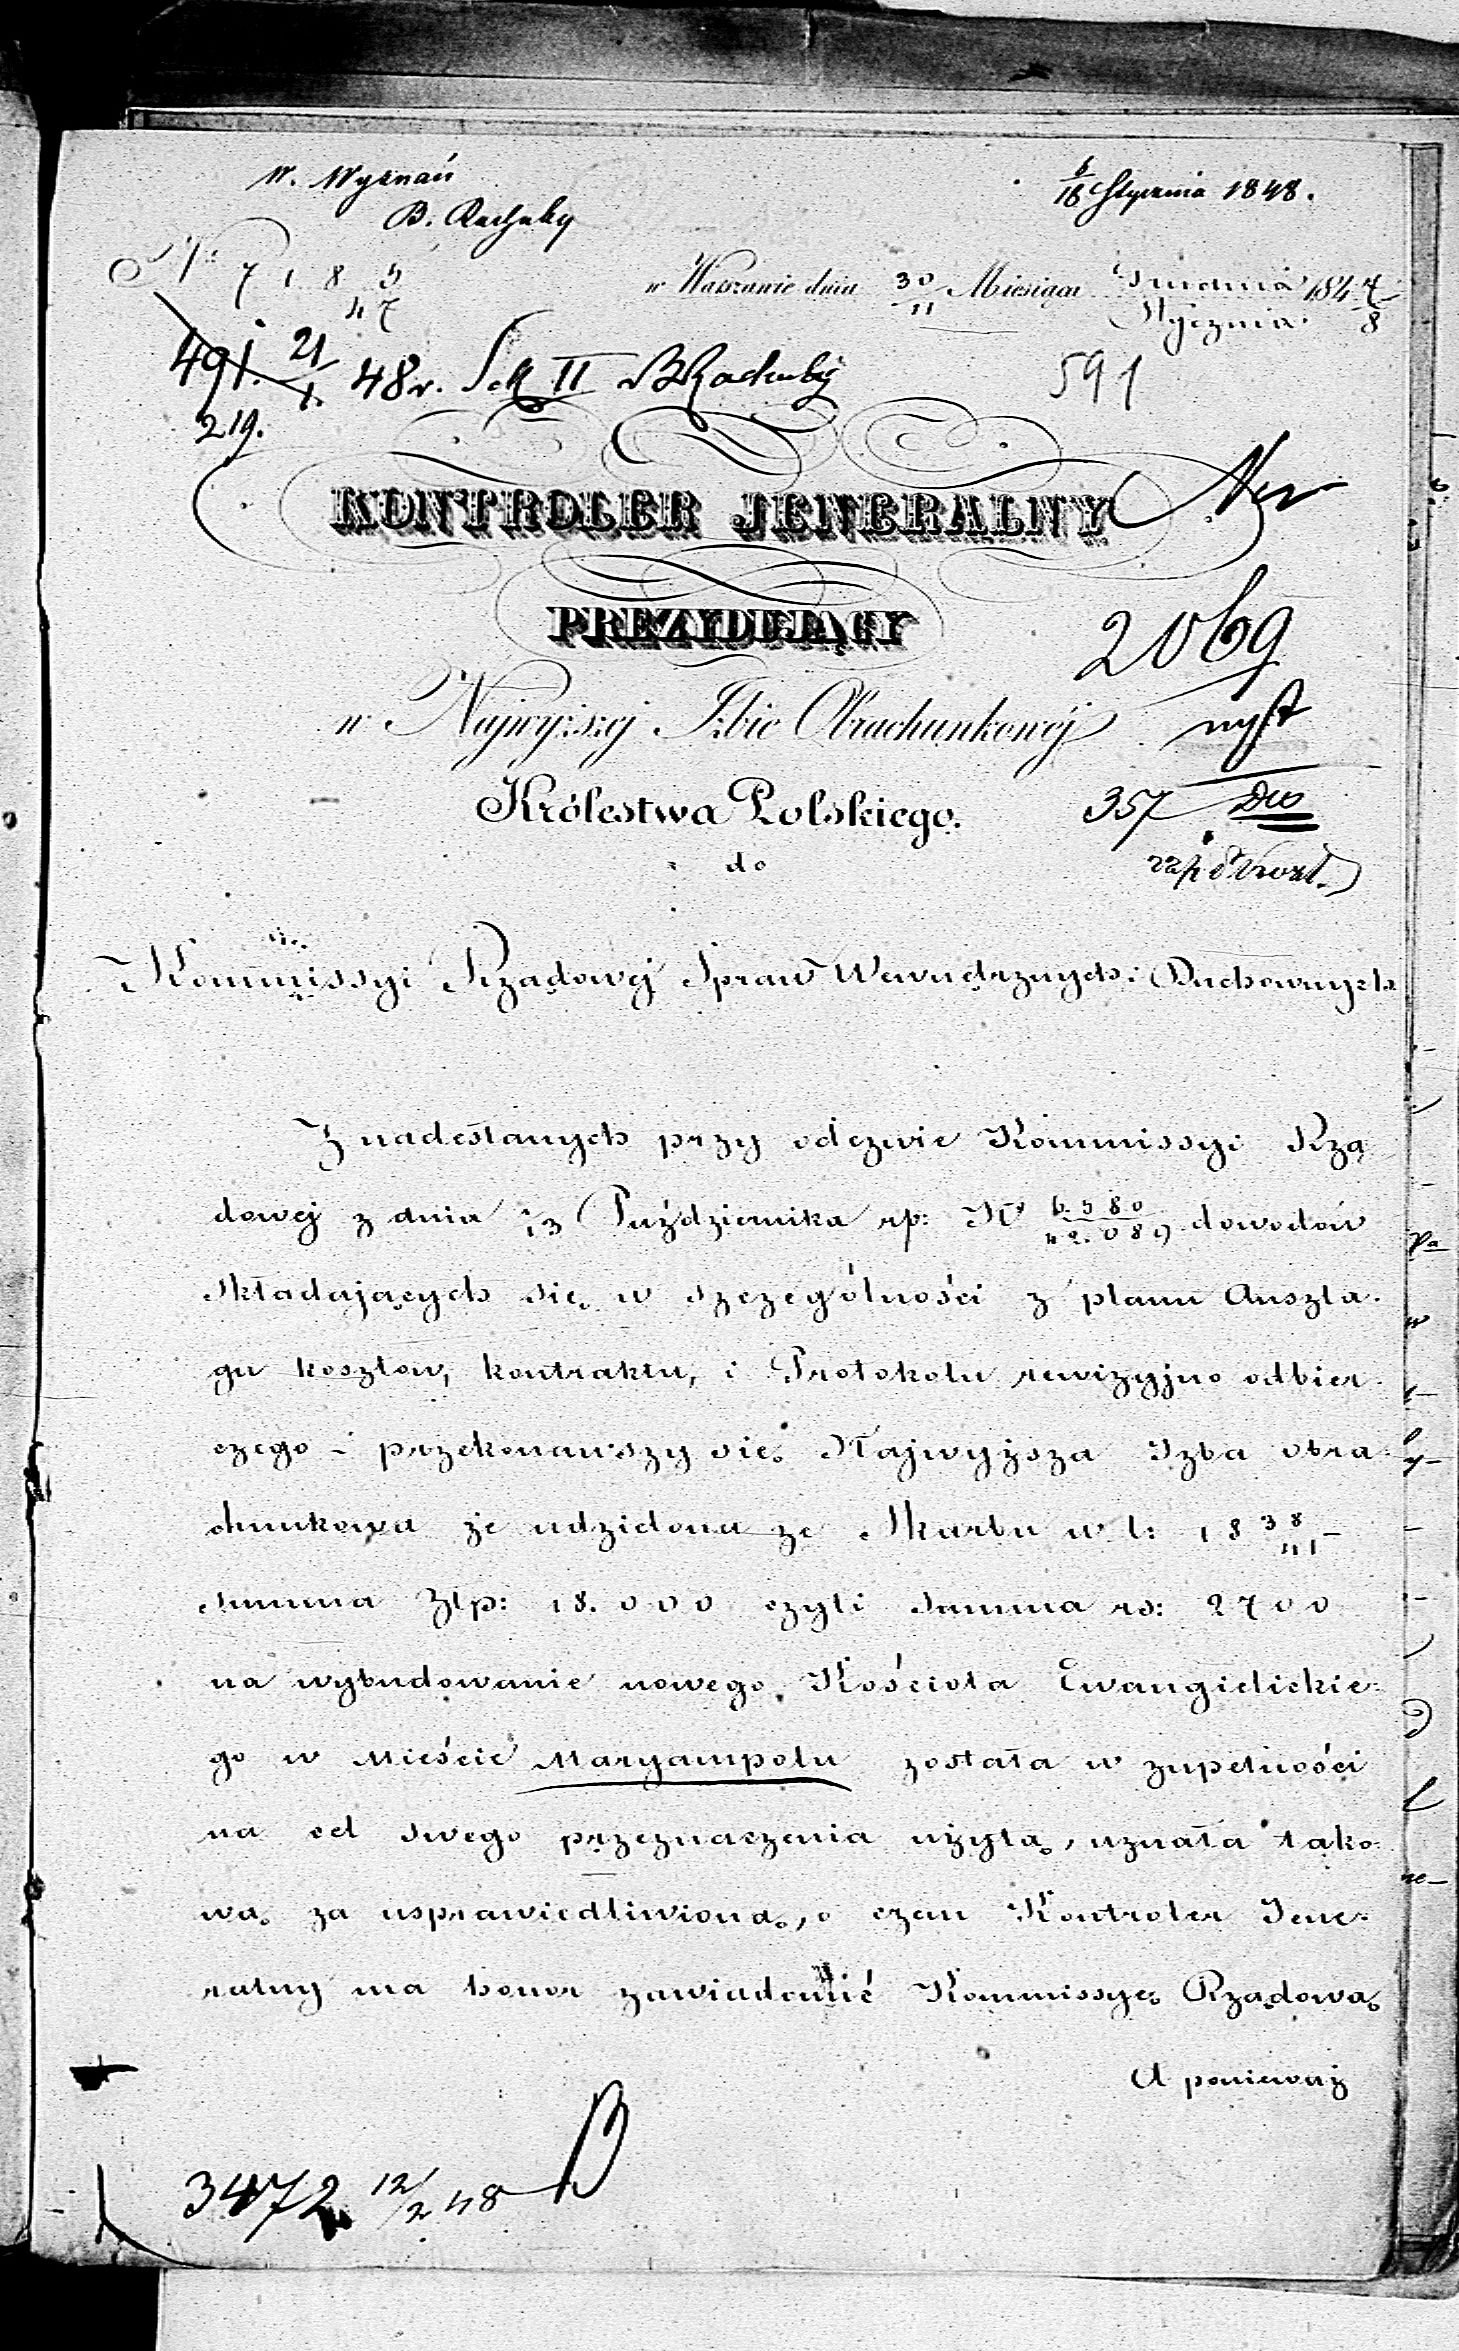 W. Wyznań
B. Rachuby
6/18 Stycznia 1848.
No 7185
47
w Warszawie dnia 30/11 Miesiąca Grudnia/Stycznia 1847/8
491. 21/1. 48 r. Sek II B Rachuby
591
219.
KONTROLER JENERALNY
PREZYDUJĄCY
2069
w Najwyższej Izbie Obrachunkowéj
Królestwa Polskiego.
357
do
Kommissyi Rządowej Spraw Wewnętrznych i Duchownych
Z nadesłanych przy odezwie Kommissyi Rzą
dowej z dnia 1/13 Października rp: N 6.580/42.089 dowodów
składających się w szczególności z planu Anszla-
gu kosztów, kontraktu, i Protokołu rewizyjno odbior
czego - przekonawszy się Najwyższa Izba obra
chunkowa że udzielona ze Skarbu w l: 1838/41 -
summa Złp: 18.000 czyli summa rs: 2700
na wybudowanie nowego Kościoła Ewangielickie-
go w Mieście Maryampolu została w zupełności
na cel swego przeznaczenia użytą, uznała tako-
wą za usprawiedliwioną, o czem Kontroler Jene-
ralny ma honor zawiadomić Kommissyę Rządową
A ponieważ
3472 12/2 48